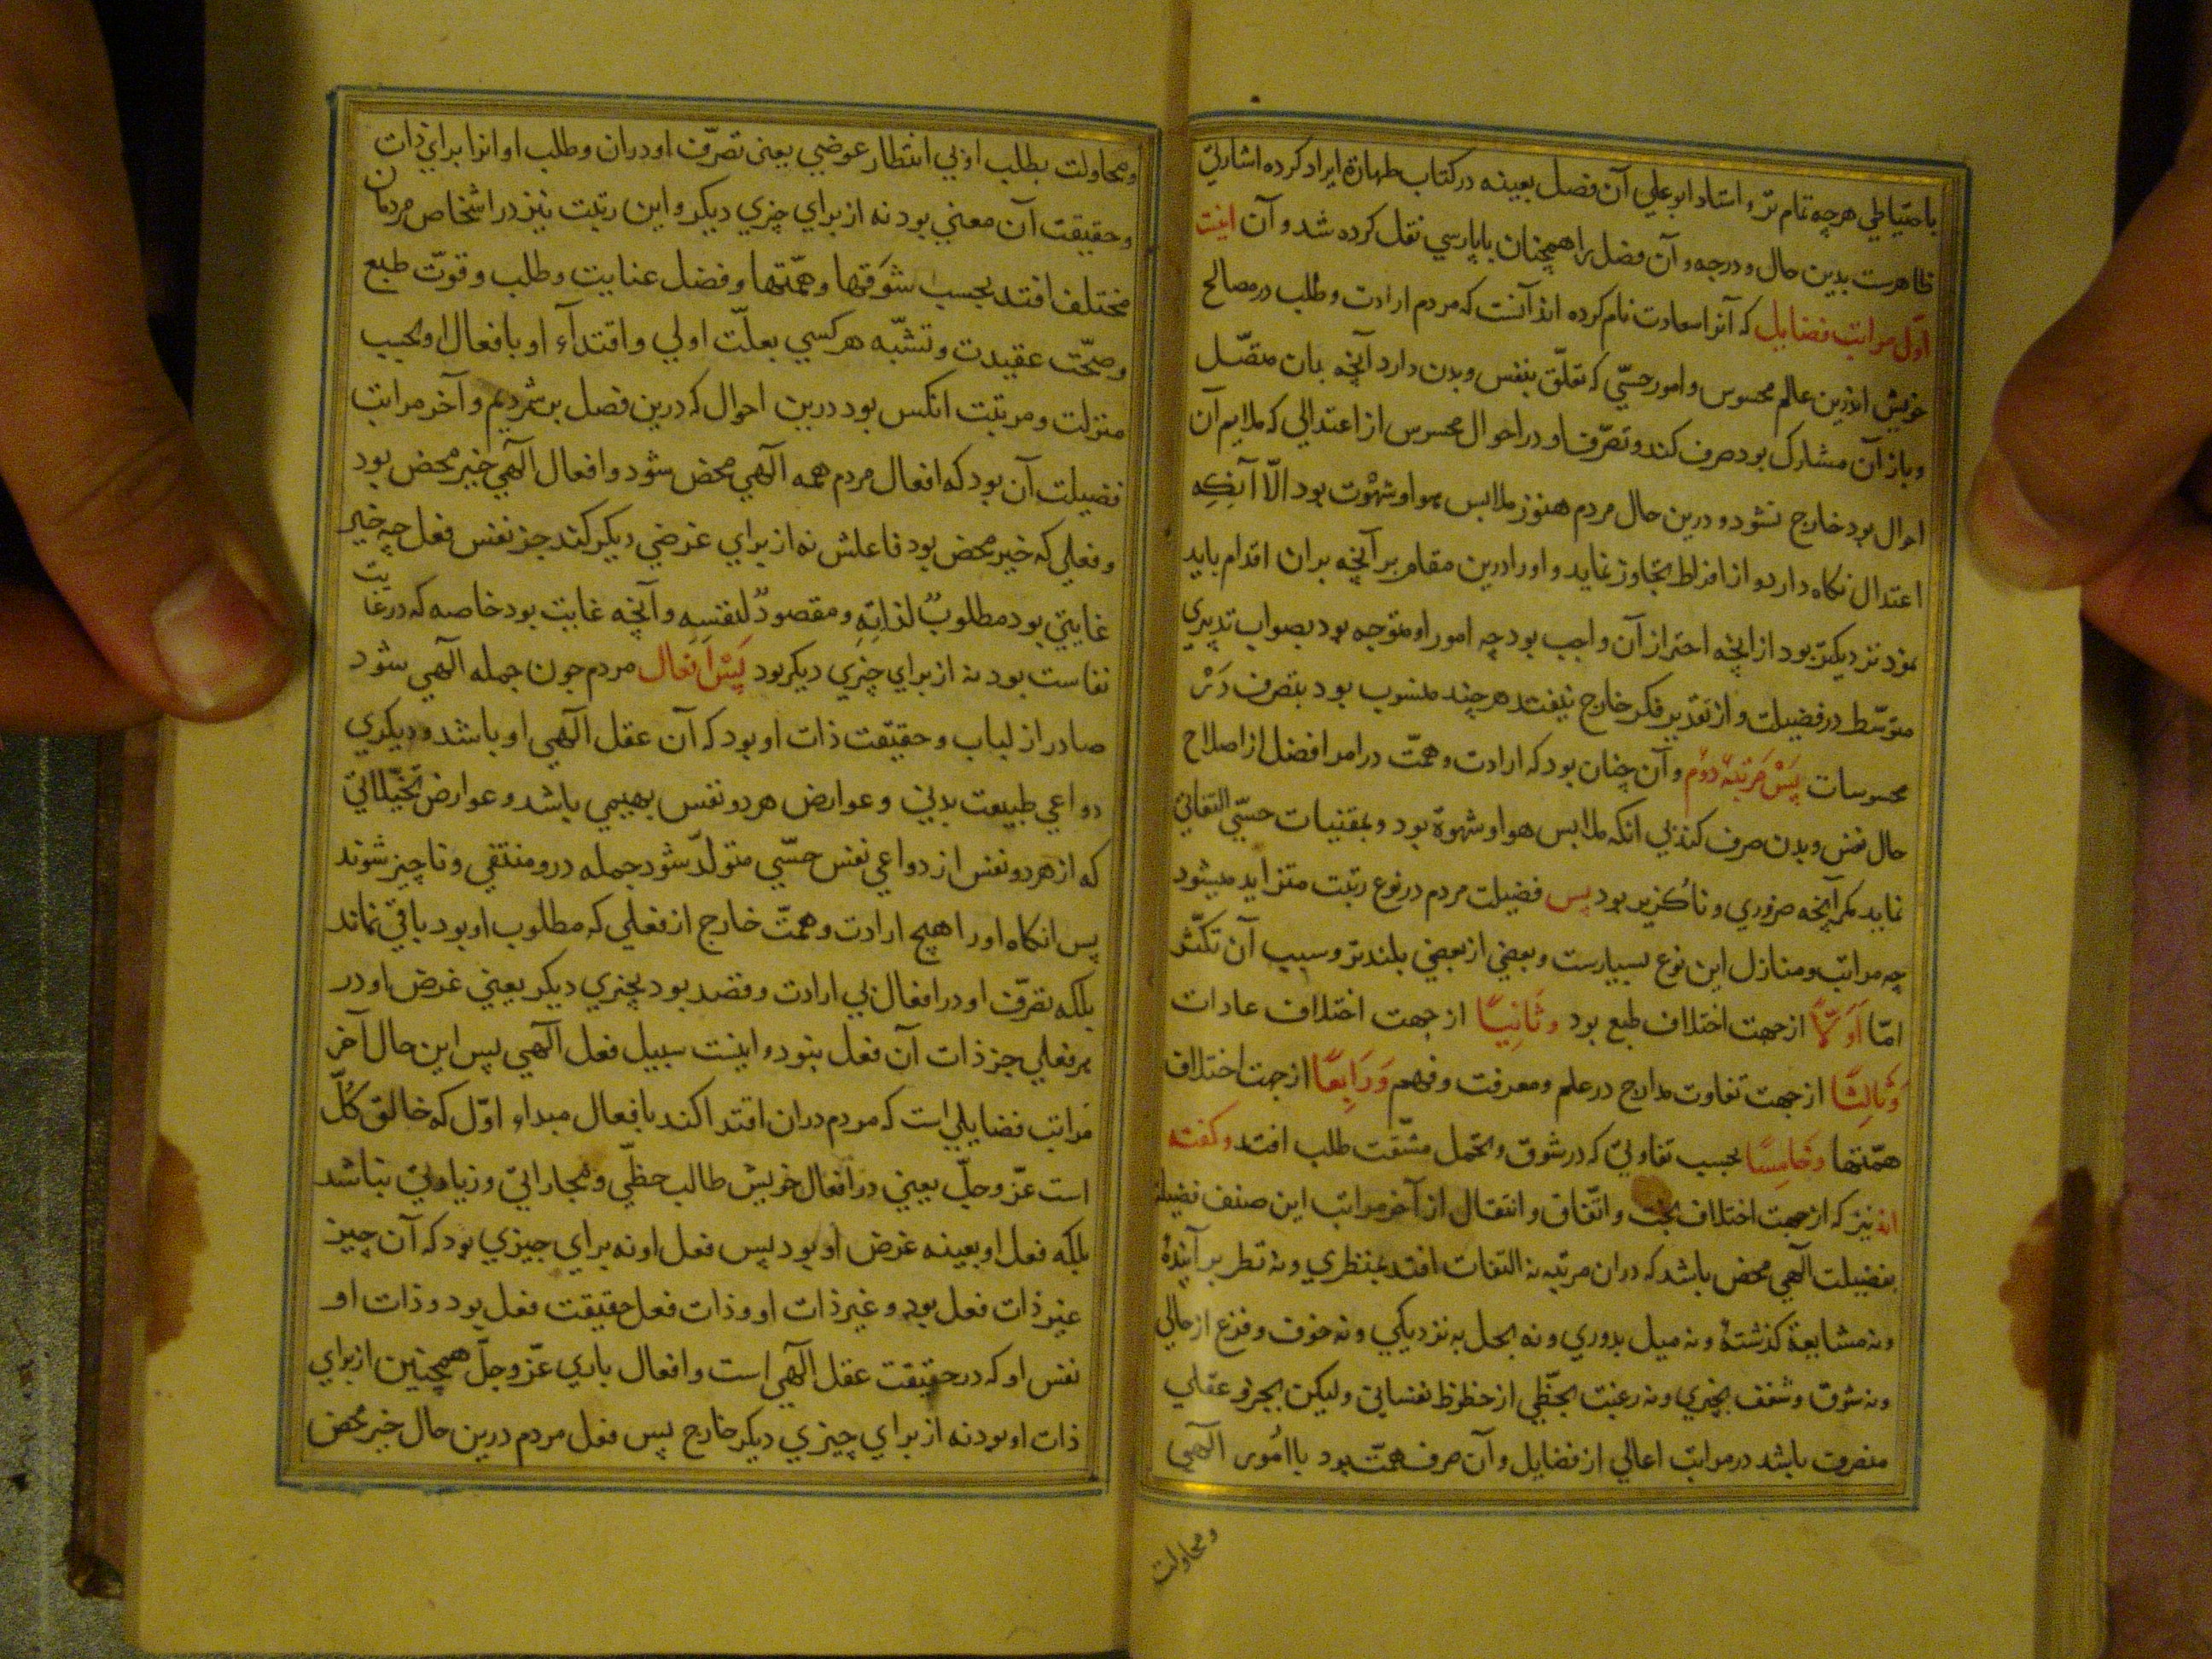 باحتیاطی هرچه تمام تر و استاد ابو علی آن فصل بعینه در کتاب طهارة ایراد کرده اشارتی
ظاهرست بدین حال و درجه و آن فصل را همچنان با پارسی نقل کرده شد و آن اینست
اول مراتب فضایل که آنرا سعادت نام کرده اند آنست که مردم ارادت و طلب در مصالح
خویش اندرین عالم محسوس و امور حسّی که تعلّق بنفس و بدن دارد آنچه بدان متصّل
و باز آن مشارک بود صرف کند و تصرّف او در احوال محسوس از اعتدالی که ملایم آن
احوال بود خارج نشود و درین حال مردم هنوز ملابس هوا و شهوت بود الّا آنکه
اعتدال نکاه دارد و از افراط تجاوز نماید و او را درین مقام بر آنچه بران اقدام باید
نمود نزدیکتر بود از آنچه احتراز آن واجب بود چه امور او متوجه بود بصواب تدبیری
متوسّط در فضیلت و از تقدیر فکر خارج نیفتد هر چند منسوب بود بتصرف در
محسوسات پس مرتبهٔ دوم و آن چنان بود که ارادت و همّت در امر افضل از اصلاح
حال نفس و بدن صرف کند بی انکه ملابس هوا و شهوة بود و بمقتنیات حسّی التفاتی
نماید مکر آنچه ضروری و ناکزیر بود پس فضیلت مردم در نوع رتبت متزاید میشود
چه مراتب و منازل این نوع بسیارست و بعضی از بعضی بلندتر و سبب آن تکثّر
امّا اوّلاً از جهت اختلاف طبع بود و ثانیاً از جهت اختلاف عادات
و ثالثاً از جهت تفاوت مدارج در علم و معرفت و فهم و رابعاً از جهت اختلاف
همّتها و خامساً بحسب تفاوتی که در شوق و تحمل مشقّت طلب افتد و کفته
اند نیز که از جهت اختلاف بخت و اتّفاق و انتقال از آخر مراتب این صنف فضیلت
بفضیلت الهی محض باشد که دران مرتبه نه التفات افتد بمنتظری و نه نظر بر آیندهٔ
و نه مشایعة کذشتهٔ و نه میل بدوری و نه بخل به نزدیکی و نه خوف و فزع از حالی
و نه شوق و شغف بچیزی و نه رغبت بحظّی از حظوظ نفسانی و لیکن بجزو عقلی
متصرف باشد در مراتب اعالی از فضایل و آن صرف همّت بود با امور الهی
و محاولت
و محاولت بطلب او بی انتظار عوضی یعنی تصرّف او دران و طلب او انرا برای ذات
و حقیقت آن معنی بود نه از برای چیزی دیکر و این رتبت نیز در اشخاص مردمان
مختلف افتد بحسب شوقها و همّتها و فضل عنایت و طلب و قوّت طبع
و صحّت عقیدت و تشبّه هر کسی بعلّت اولی و اقتدآء او بافعال او بحسب
منزلت و مرتبت انکس بود درین احوال که درین فصل برشمردیم و آخر مراتب
فضیلت آن بود که افعال مردم همه الهی محض شود و افعال الهی خیر محض بود
و فعلی که خیر محض بود فاعلش نه از برای غرضی دیکر کند جز نفس فعل چه خیر
غایتی بود مطلوبٌ لذاته و مقصودٌ لنفسه و آنچه غایت بود خاصه که در غایت
نفاست بود نه از برای چیزی دیکر بود پس افعال مردم چون جمله الهی شود
صادر از لباب و حقیقت ذات او بود که آن عقل الهی او باشد و دیکری
دواعی طبیعت بدنی و عوارض هر دو نفس بهیمی باشد و عوارض تخیّلاتی
که از هر دو نفس از دواعی نفس حسّی متولّد شود جمله درو منتفی و ناچیز شوند
پس انکاه او را هیچ ارادت و همّت خارج از فعلی که مطلوب او بود باقی نماند
بلکه تصرّف او در افعال بی ارادت و قصد بود بچیزی دیکر یعنی غرض او در
هر فعلی جز ذات آن فعل نبود و اینست سبیل فعل الهی پس این حال آخر
مراتب فضایلی است که مردم دران اقتدا کند بافعال مبداء اوّل که خالق کلّ
است عزّ و جلّ یعنی در افعال خویش طالب حظّی و مجاراتی و زیادتی نباشد
بلکه فعل او بعینه غرض او بود پس فعل او نه برای چیزی بود که آن چیز
غیر ذات فعل بود و غیر ذات او و ذات فعل حقیقت فعل بود و ذات او
نفس او که در حقیقت عقل الهی است و افعال باری عزّ و جلّ همچنین از برای
ذات او بود نه از برای چیزی دیکر خارج پس فعل مردم درین حال خیر محض